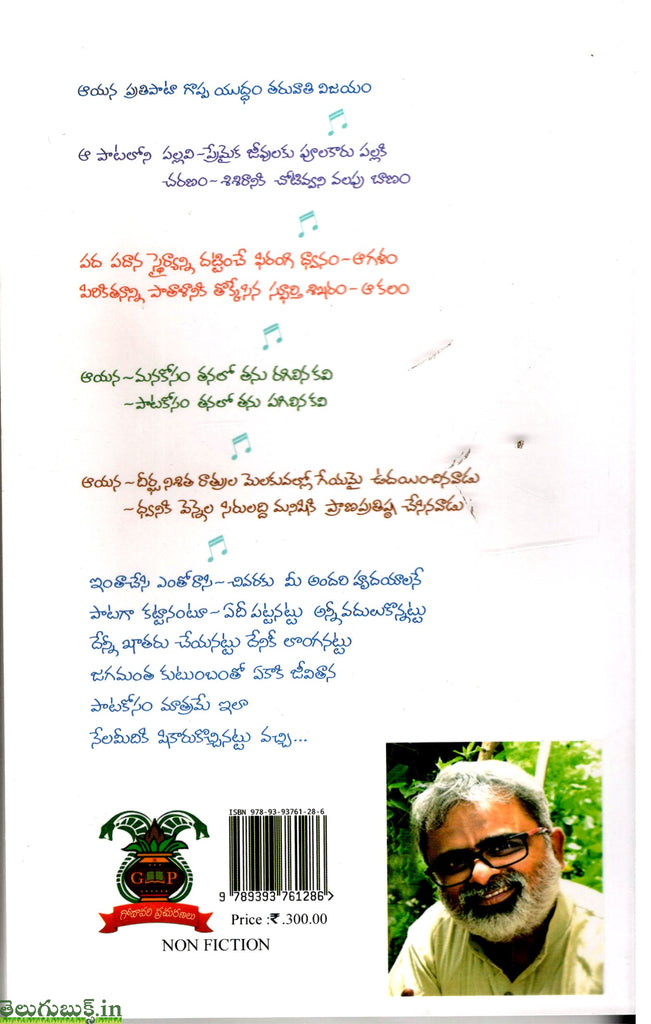 ఆయన ప్రతిపాటా గొప్ప యుద్ధం తరువాతి విజయం
ఆ పాటలోని పల్లవి-ప్రేమైక జీవులకు పూలకారు పల్లకి
చరణం-శిశిరానికి చోటివ్వని వలపు బాణం
పద పదాన స్థైర్యాన్ని దట్టించే ఫిరంగి ధ్వానం-ఆగళం
పిరికితనాన్ని పాతాళానికి తొక్కేసిన స్ఫూర్తి శిఖరం-ఆ కలం
ఆయన-మనకోసం తనలో తను రగిలిన కవి
-పాటకోసం తనలో తను పగిలిన కవి
ఆయన-దీర్ఘ నిశిత రాత్రుల మెలకువల్లో గేయమై ఉదయించినవాడు
-ధ్వనికి వెన్నెల సిరులద్ది మనిషికి ప్రాణప్రతిష్ఠ చేసినవాడు
ఇంతాచేసి ఎంతోరాసి-చివరకు మీ అందరి హృదయాలనే
పాటగా కట్టానంటూ-ఏదీ పట్టనట్టు అన్నీ వదులుకొన్నట్టు
దేన్నీ ఖాతరు చేయనట్టు దేనికీ లొంగనట్టు
జగమంత కుటుంబంతో ఏకాకి జీవితాన
పాటకోసం మాత్రమే ఇలా
నేలమీదికి షికారుకొచ్చినట్టు వచ్చి...
ISBN 978-93-93761-28-6
G P
గోదావరి ప్రచురణలు
9 789393 761286 >
Price :₹.300.00
NON FICTION
తెలుగుబుక్స్.in